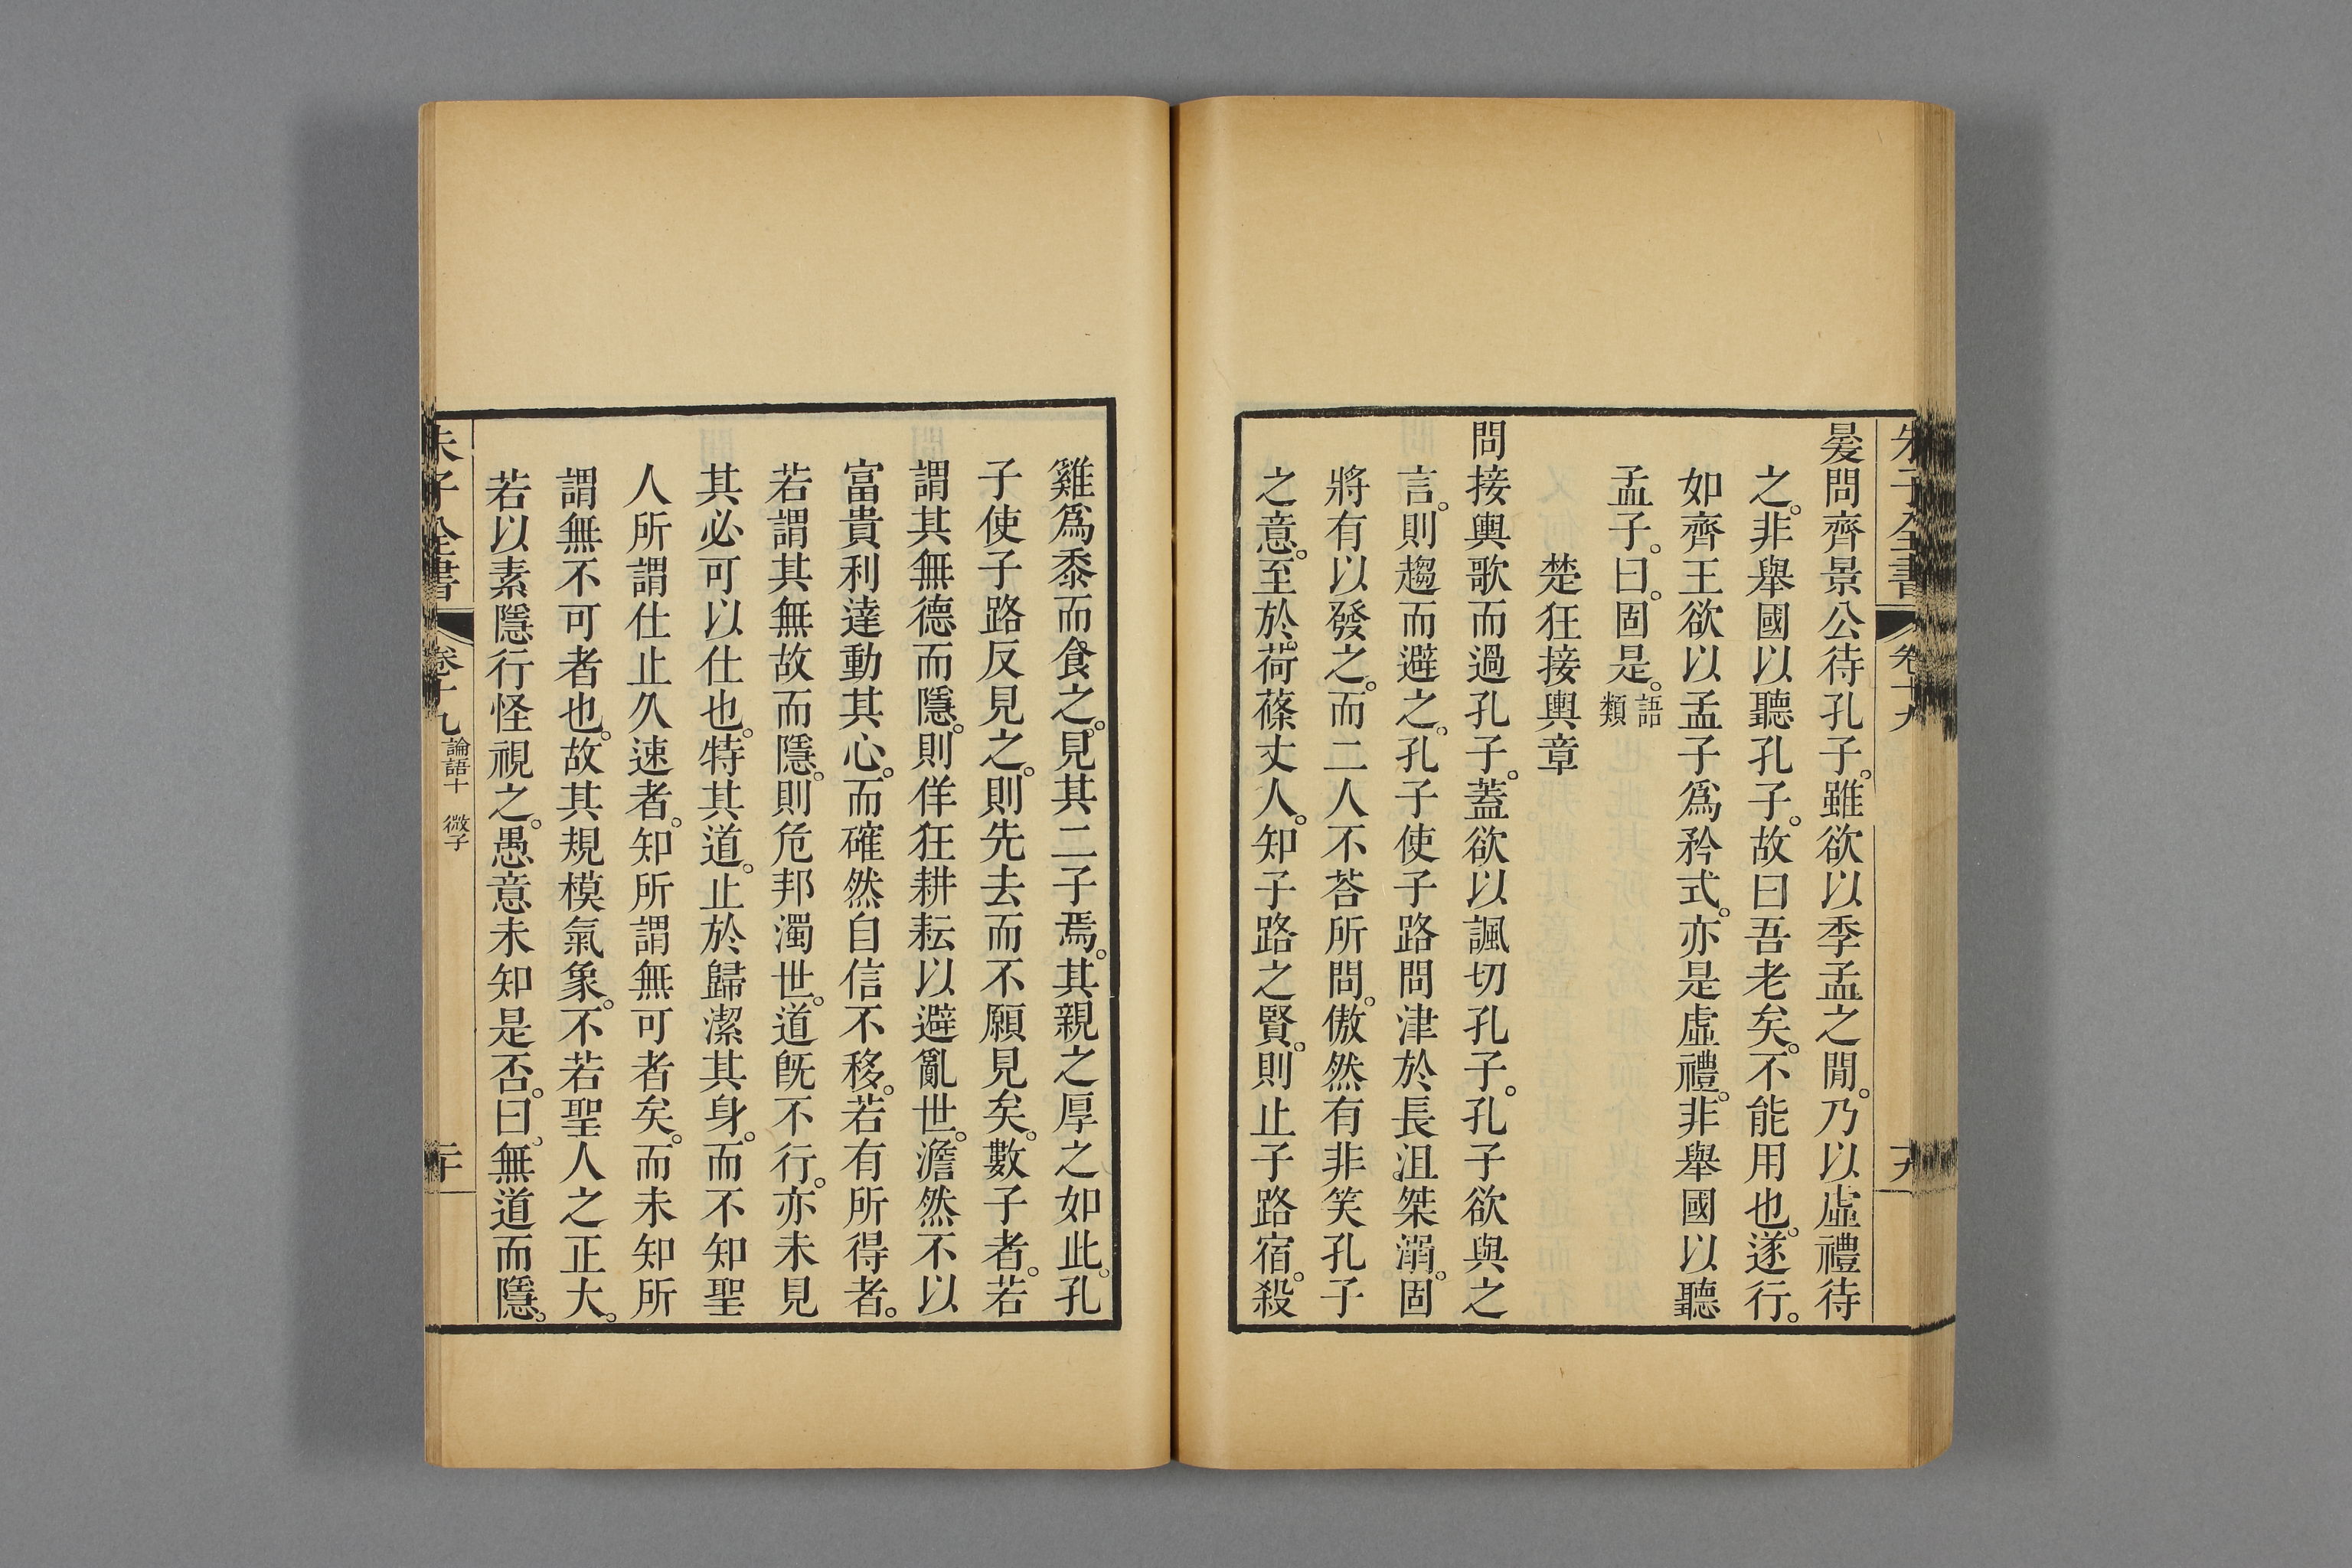 朱子全書 卷十九 十九
晏問齊景公待孔子。雖欲以季孟之閒。乃以虛禮待
之。非舉國以聽孔子。故曰吾老矣。不能用也。遂行。
如齊王欲以孟子爲矜式。亦是虛禮。非舉國以聽
孟子。曰。固是。語類
楚狂接輿章
問接輿歌而過孔子。蓋欲以諷切孔子。孔子欲與之
言。則趨而避之。孔子使子路問津於長沮。桀溺。固
將有以發之。而二人不荅所問。傲然有非笑孔子
之意。至於。荷蓧丈人。知子路之賢。則止子路宿。殺
雞爲黍而食之。見其二子焉。其親之厚之如此。孔
子使子路反見之。則先去而不願見矣。數子者。若
謂其無德而隱。則佯狂耕耘以避亂世。澹然不以
富貴利達動其心。而確然自信不移。若有所得者。
若謂其無故而隱。則危邦濁世。道旣不行。亦未見
其必可以仕也。特其道。止於歸潔其身。而不知聖
人所謂仕止久速者。知所謂無可者矣。而未知所
謂無不可者也。故其規模氣象。不若聖人之正大。
若以素隱行怪視之。愚意未知是否。曰。無道而隱。
朱子全書 卷十九 論語十 微子 二十